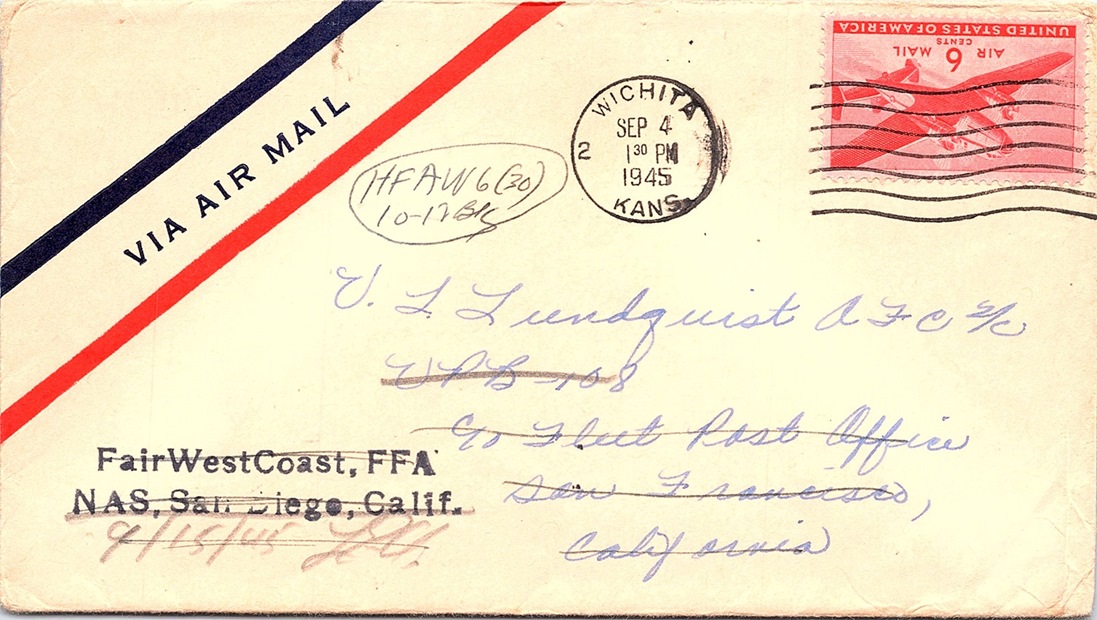 VIA AIR MAIL
UNITED STATES OF AMERICA
AIR 6 MAIL
CENTS
WICHITA
SEP 4
2 1 30 PM
1945
KANS.
HFAW6(30)
10-17
V. L. Lundquist A F C 2/c
VPB-108
c/o Fleet Post Office
San Francisco,
California
FairWestCoast, FFA
NAS, San Diego, Calif.
9/15/45